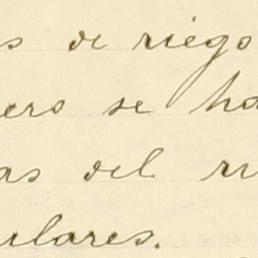 s de riego
ero se ha
as del
ulares.